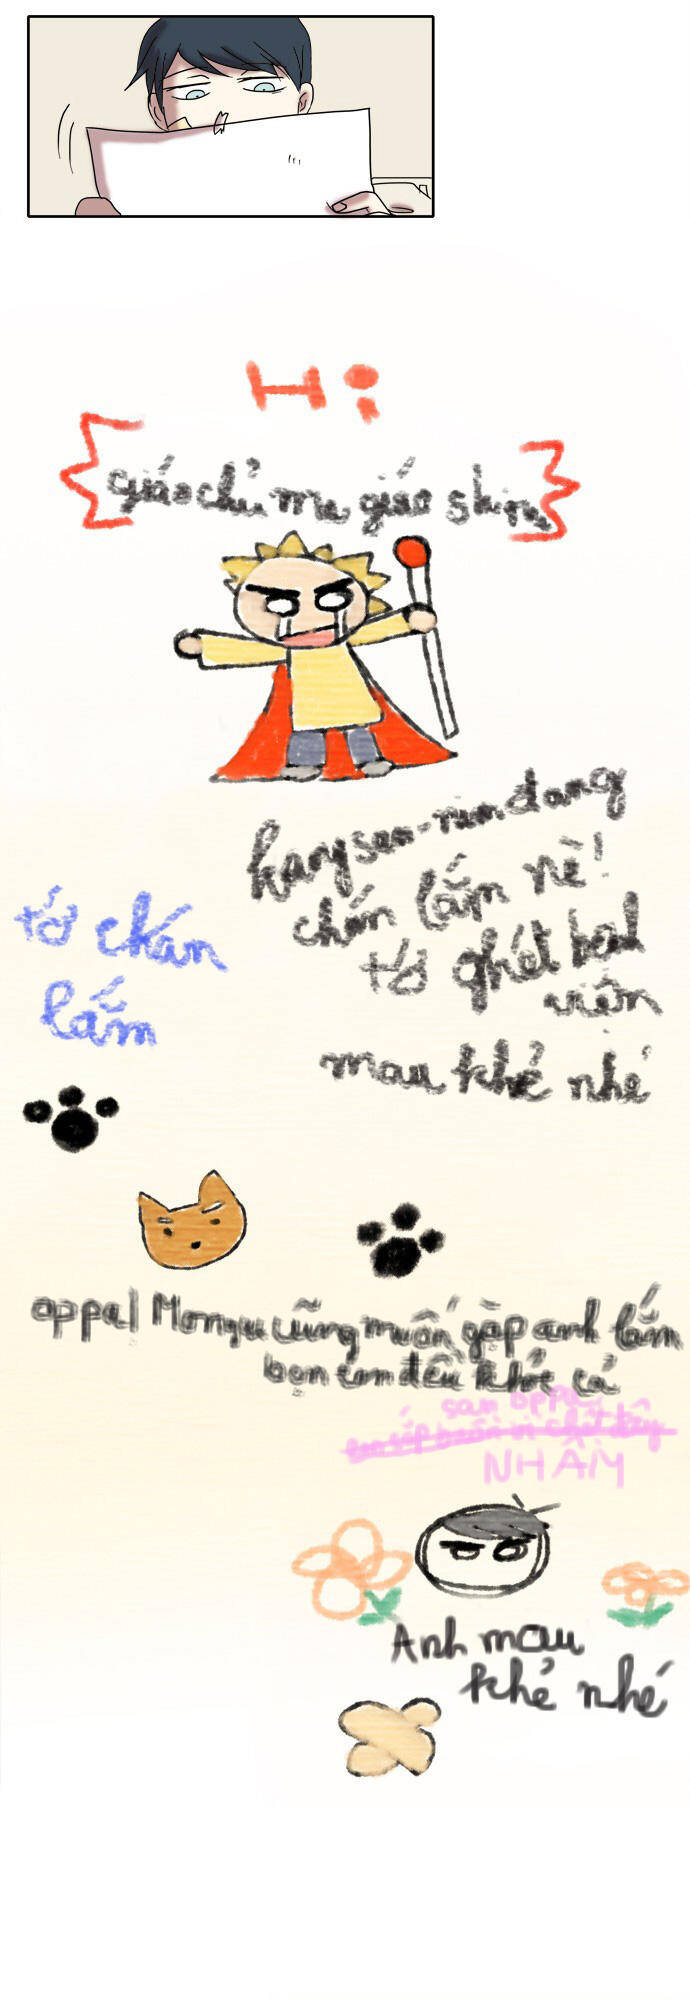 Hi
giáo chủ ma giáo shinu
kang san-nim đang
chán lắm nè!
tớ ghét bệnh
viện
mau khỏe nhé
tớ chán
lắm
oppa! Mongu cũng muốn gặp anh lắm
bọn em đều khóc cả
san oppa
NHẦM
Anh mau
khỏe nhé